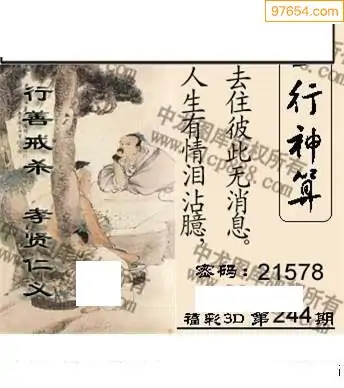 97654.com
行神算
去住彼此无消息。
人生有情泪沾臆,
行善戒杀 孝贤仁义
密码:21578
福彩3D 第244期
中龙图库版权所有
i